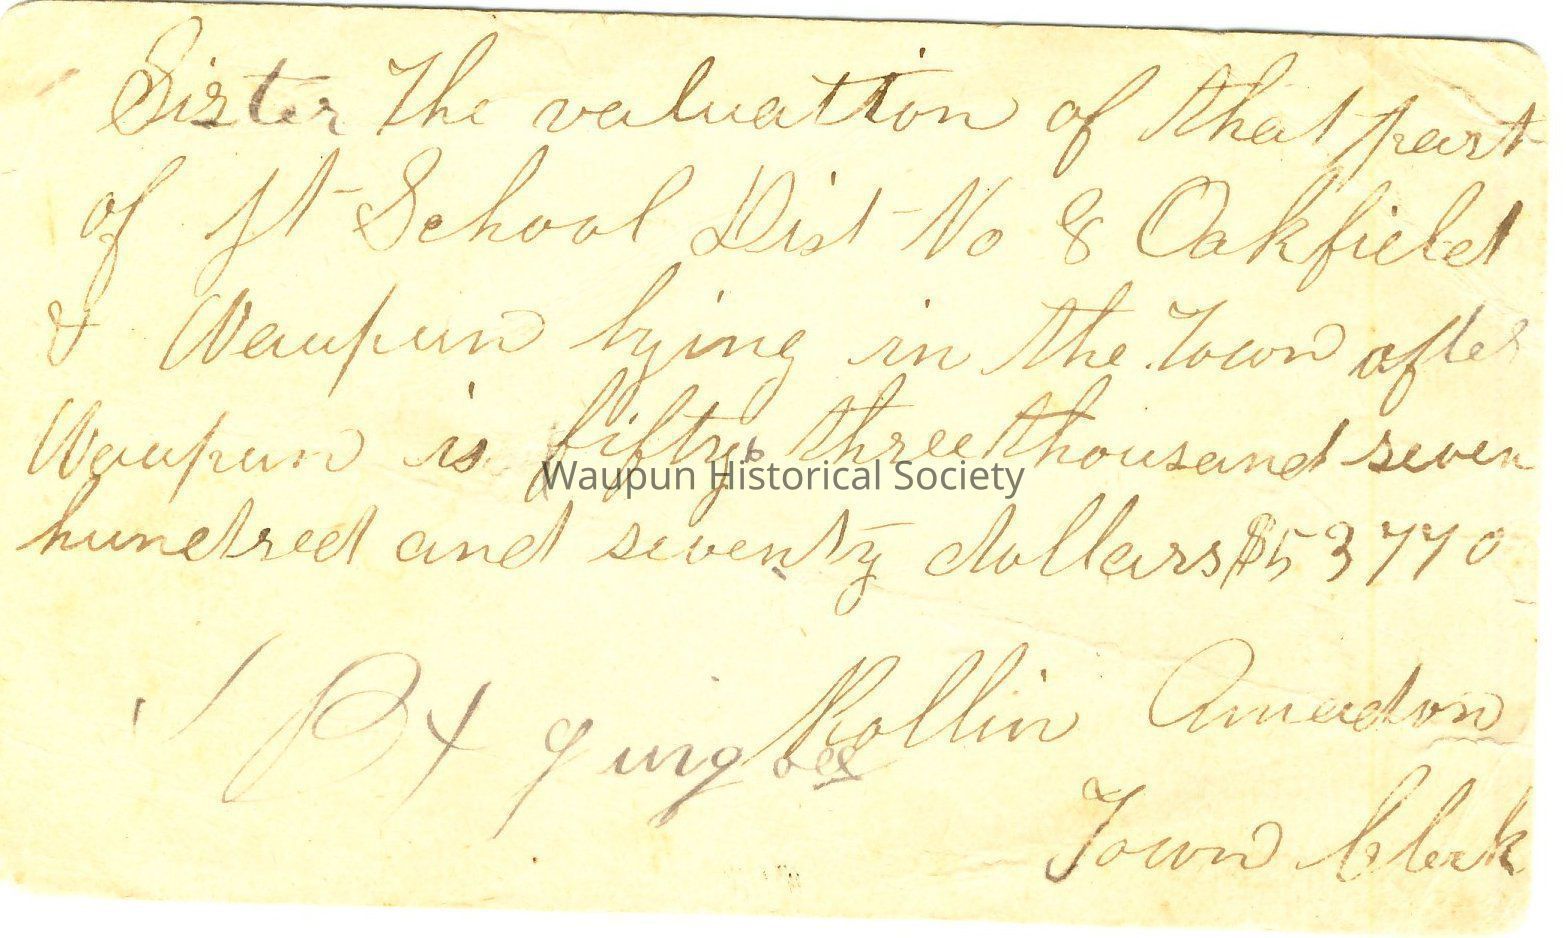 Sister The valuation of that part
of Jt School Dist No 8 Oakfield
& Waupun lying in the Town of
Waupun is fifty three thousand seven
Waupun Historical Society
hundred and seventy dollars $53770
Rollin Amadon
Town Clerk